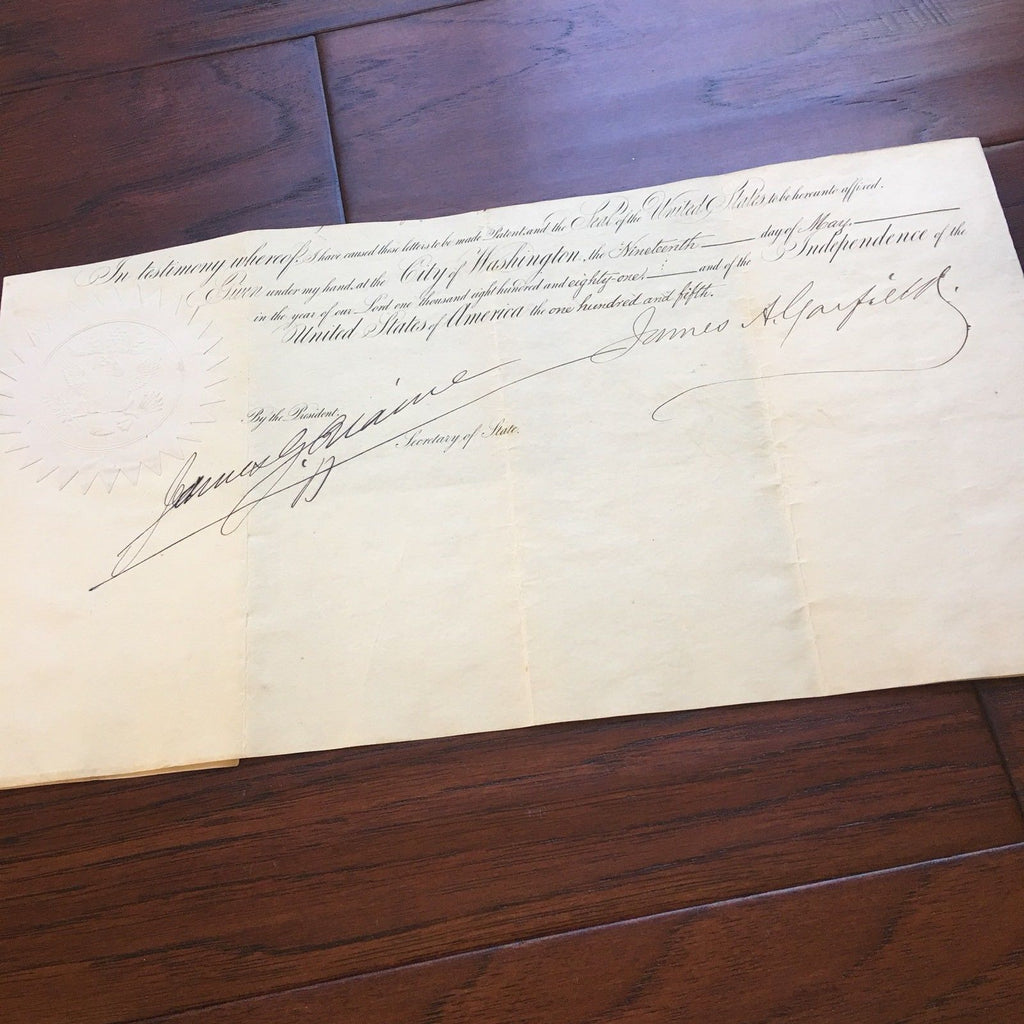 In testimony whereof, I have caused these letters to be made Patent and the Seal of the United States to be hereunto affixed.
Given under my hand, at the City of Washington, the Nineteenth day of May,
in the year of our Lord one thousand eight hundred and eighty-one, and of the Independence of the
United States of America the one hundred and fifth.
James A. Garfield.
By the President,
James G. Blaine
Secretary of State.